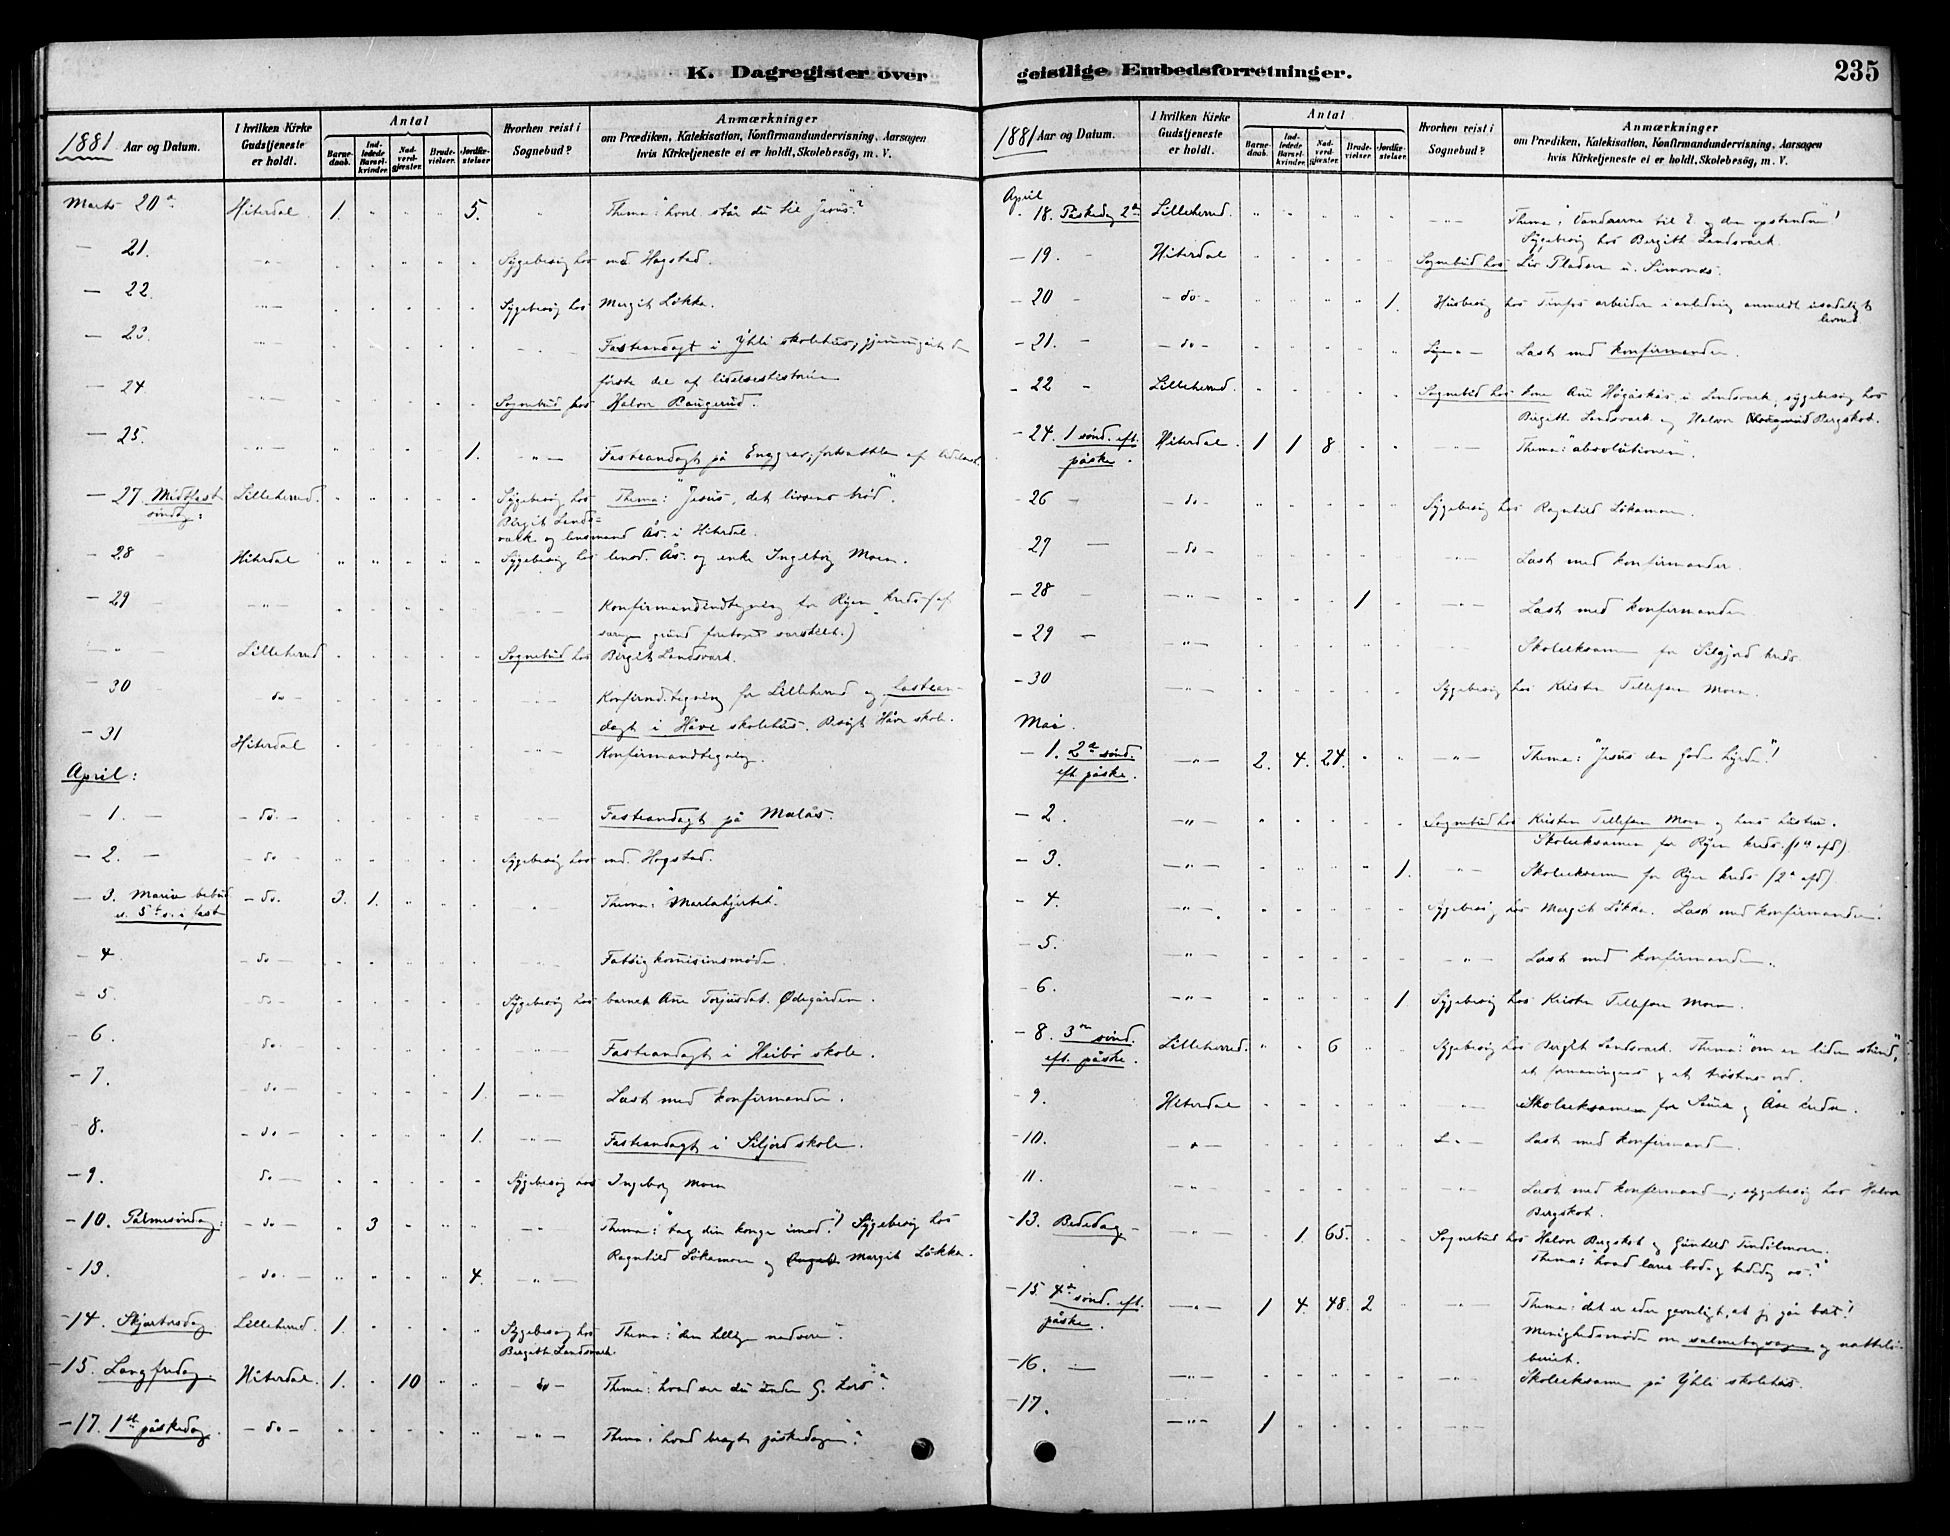 K. Dagregister over
geistlige Embedsforretninger.
235
1881 Aar og Datum.
I hvilken Kirke Gudstjeneste er holdt.
Antal
Barnedaab.
Indledede Barselkvinder.
Nadverdgjester.
Brudevielser.
Jordfæstelser.
Hvorhen reist i Sognebud?
Anmærkninger
om Prædiken, Katekisation, Konfirmandundervisning, Aarsagen
hvis Kirketjeneste ei er holdt, Skolebesög, m. V.
Marts 20 Hiterdal. 1. " " " 5. " Thema: "hvorl. står du til Jesus"?
— 21. — " — Sygebesøg hos md. Hogstad.
— 22. — " — Sygebesøg hos Margit Løkka.
— 23. — " — Fasteandagt i Yhli skolehus, gjennemgik den
første del af lidelseshistorien
— 24 — " — Sognebud hos Halvor Baugerud.
— 25. — " — 1. — " — Fasteandagt på Enggrav, fortsættelse af
— 27 Midtfast Lilleherred. Sygebesøg hos Thema: "Jesus, det livsens brød".
søndag: Birgit Lands-
vark og lensmand Ås i Hiterdal.
— 28 — Hiterdal Sygebesøg hos lensd. Ås. og enke Ingeborg Moen.
— 29 — " — Konfirmandindtegning for Ryen kreds (af
grund foretoges særskilt.)
— " — Lilleherred Sognebud hos Birgit Landsvark.
— 30 — do — Konfirmd.tegning for Lilleherred og fastean-
dagt i Håve skolehus. Besøgt Håve skole.
— 31 Hiterdal Konfirmandtegning.
April:
— 1. — — do. — Fasteandagt på Malås.
— 2. — — do — Sygebesøg hos md. Hogstad.
— 3. Mariæ bebud. — do. 3. 1. Thema: "Martahjertet".
s. 5te s. i faste
— 4 — do — Fattigkomisionsmøde.
— 5. — do — Sygebesøg hos barnet Ane Torjusdat. Ødegården.
— 6 — do. — Fasteandagt i Heibø skole.
— 7. — do — 1. — " — Læst med konfirmander.
— 8. — do — 1. — " — Fasteandagt i Siljord skole.
— 9. do — Sygebesøg hos Ingeborg Moen
— 10. Palmesøndag: — do — " 3 Thema: "tag din konge imod"! Sygebesøg hos
Ragnhild Løkamoen og Margit Løkka.
— 13. — do. — 4. — " —
— 14. Skjærtorsdag Lilleherred. 1. Sygebesøg hos Thema: "den hellige nadvere".
Bergith Landsvark.
— 15. Langfredag. Hiterdal. 1. " 10 — do — Thema: "hvad ser du under J. kors"?
— 17. 1ste påskedag. — do — — " — Thema: "hvad bragte påskedagen"?
1881 Aar og Datum.
I hvilken Kirke Gudstjeneste er holdt.
Antal
Barnedaab.
Indledede Barselkvinder.
Nadverdgjester.
Brudevielser.
Jordfæstelser.
Hvorhen reist i Sognebud?
Anmærkninger
om Prædiken, Katekisation, Konfirmandundervisning, Aarsagen
hvis Kirketjeneste ei er holdt, Skolebesög, m. V.
April
18. Påskedag 2den Lilleherred. — " — Thema: "Vandrerne til E. og den opstandne"!
Sygebesøg hos Bergith Landsvark.
— 19. — Hiterdal Sognebud hos Liv u. Simones.
— 20 — — do — 1. Husbesøg hos Tinfos arbeider i anledning anmeldt usædeligt
levned.
— 21. — — do — Læst med konfirmander.
— 22 — Lilleherred. Sognebud hos kone Ane Högåskås u. Landsvark, sygebesøg hos
Birgith Landsvark og Halvor Bergskot.
— 24. 1 sønd. eft. Hiterdal. 1 1 8 — " — Thema: "absolutionen".
påske.
— 26 — — do — Sygebesøg hos Ragnhild Løkamoen.
— 27 — — do — Læst med konfirmander.
— 28 — — " — 1 — " — Læst med konfirmander
— 29 — — " — Skoleeksamen for Silgjord kreds
— 30 — " — Sygebesøg hos Kristen Tellefsen Moen.
Mai.
— 1. 2den sønd. — " — 2. 4. 24. — " — Thema: "Jesus den gode hyrde"!
eft. påske.
— 2. — " — Sognebud hos Kristen Tellefsen Moen og hans hustru.
Skoleeksamen for Ryen kreds. (1ste afd)
— 3. — " — 1. — " — Skoleeksamen for Ryen kreds (2den afd).
— 4. — " — Sygebesøg hos Margit Løkka. Læst med konfirmander.
— 5. — " — — " — Læst med konfirmander.
— 6. — " — 1 Sygebesøg hos Kristen Tellefsen Moen.
— 8. 3den sønd. Lilleherred. " " 6 Sygebesøg hos Bergit Landsvark. Thema: "om en liden stund",
eft. påske. et formaningens og et trøstens ord.
— 9. Hiterdal Skoleeksamen for Sauer og Åse kredse.
— 10. — " — Læst med konfirmand.
11. — " — Læst med konfirmand., sygebesøg hos Halvor
Bergskot.
— 13. Bededag — — " — 1 65. Sognebud hos Halvor Bergskot og Gunhild Tindölmoen.
Thema: "hvad lærer bods og bededag os"?
— 15. 4de sønd. eft. — " — 1 4. 48. 2 — " — Thema: "det er eder gavnligt, at jeg går bort"!
påske. Menighedsmøde om salmebogsag og natteløberiet.
— 16. — — " — — " — Skoleeksamen på Yhli skolehus.
— 17. — " — 1 — " —